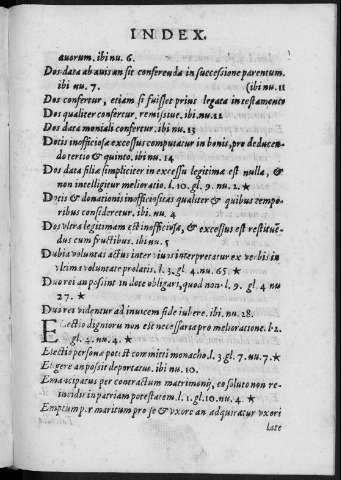 INDEX.
auorum. ibi nu. 6.
Dos data ab auis an sit conferenda in successione parentum.
ibi nu. 7. (ibi nu. 11
Dos confertur, etiam si fuisset prius legata in testamento
Dos qualiter confertur, remissiue. ibi nu. 12
Dos data moniali confertur. ibi nu. 13
Dotis inofficiosæ excessus computatur in bonis, pro deducen-
do tertio & quinto. ibi nu. 14
Dos data filiæ simpliciter in excessu legitimæ est nulla, &
non intelligitur melioratio. l. 10. gl. 9. nu. 2. ★
Dotis & donationis inofficiosæ as qualiter & quibus tempo-
ribus consideretur. ibi. nu. 4
Dos vltra legitimam est inofficiosa, & excessus est restituẽ-
dus cum fructibus. ibi nu. 5
Dubia voluntas actus inter viuos interpretatur ex verbis in
vltima voluntate prolatis. l. 3. gl. 4. nu. 65. ★
Duo rei an possint in dote obligari, quod non. l. 9. gl. 4 nu
27. ★
Duo res videntur ad inuicem fide iubere. ibi. nu. 28.
Electio digniorū non est necessaria pro melioratione. l. 2.
gl. 4. nu. 4. ★
Electio personæ potest committi monacho. l. 3. gl. 7. nu. 7. ★
Eligere an possit deportatus. ibi nu. 10.
Emancipatus per contractum matrimonij, eo soluto non re-
uocidis in patriam potestatem. l. 1. gl. 10. nu. 4. ★
Emptum per maritum pro se & vxore an adquiratur vxori
late